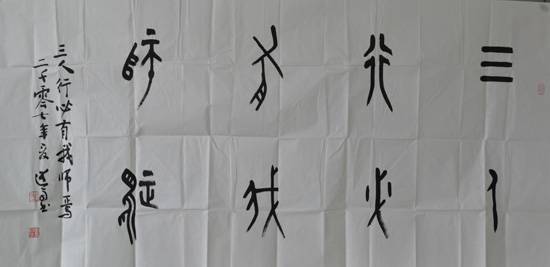 三人
行必
有我
师焉
三人行必有我师焉
二千零七年夏